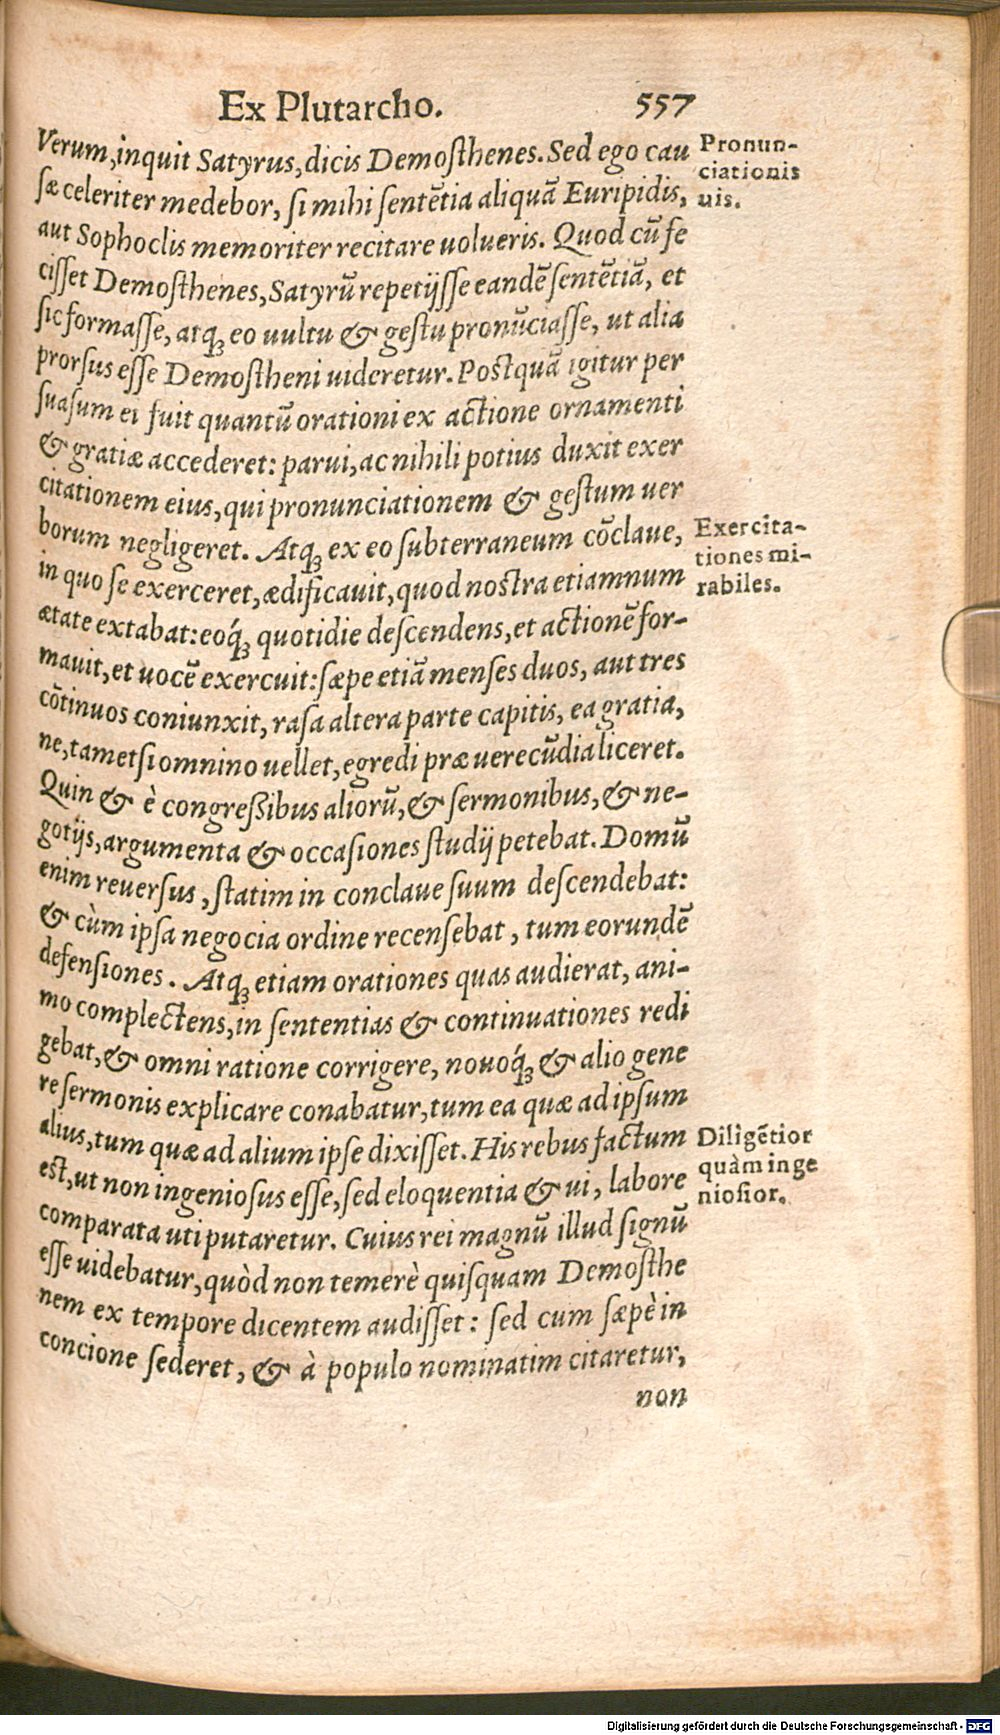 Ex Plutarcho. 557
Verum, inquit Satyrus, dicis Demosthenes. Sed ego cau
sæ celeriter medebor, si mihi sentẽtia aliquã Euripidis,
aut Sophoclis memoriter recitare uolueris. Quod cũ fe
cisset Demosthenes, Satyrũ repetijsse eandẽ sentẽtiã, et
sic formasse, atq; eo uultu & gestu pronũciasse, ut alia
prorsus esse Demostheni uideretur. Postquã igitur per
suasum ei fuit quantũ orationi ex actione ornamenti
& gratiæ accederet: parui, ac nihili potius duxit exer
citationem eius, qui pronunciationem & gestum uer
borum negligeret. Atq; ex eo subterraneum cõclaue,
in quo se exerceret, ædificauit, quod nostra etiamnum
ætate extabat: eoq́; quotidie descendens, et actionẽ for-
mauit, et uocẽ exercuit: sæpe etiã menses duos, aut tres
cõtinuos coniunxit, rasa altera parte capitis, ea gratia,
ne, tametsi omnino uellet, egredi præ uerecũdia liceret.
Quin & è congreßibus aliorũ, & sermonibus, & ne-
gotijs, argumenta & occasiones studij petebat. Domũ
enim reuersus, statim in conclaue suum descendebat:
& cùm ipsa negocia ordine recensebat, tum eorundẽ
defensiones. Atq; etiam orationes quas audierat, ani-
mo complectens, in sententias & continuationes redi
gebat, & omni ratione corrigere, nouoq́; & alio gene
re sermonis explicare conabatur, tum ea quæ ad ipsum
alius, tum quæ ad alium ipse dixisset. His rebus factum
est, ut non ingeniosus esse, sed eloquentia & ui, labore
comparata uti putaretur. Cuius rei magnũ illud signũ
esse uidebatur, quòd non temerè quisquam Demosthe
nem ex tempore dicentem audisset: sed cum sæpè in
concione sederet, & à populo nominatim citaretur,
non
Pronun-
ciationis
uis.
Exercita-
tiones mi-
rabiles.
Diligẽtior
quàm inge
niosior.
Digitalisierung gefördert durch die Deutsche Forschungsgemeinschaft - DFG